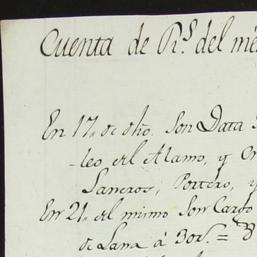 Cuenta de Rs. del me
En 17. de dho. Son Data
-leo del Alamo, y
Sancroc, Portero, y
En 21. del mismo Son Cargo
de Lana á 30rs. =